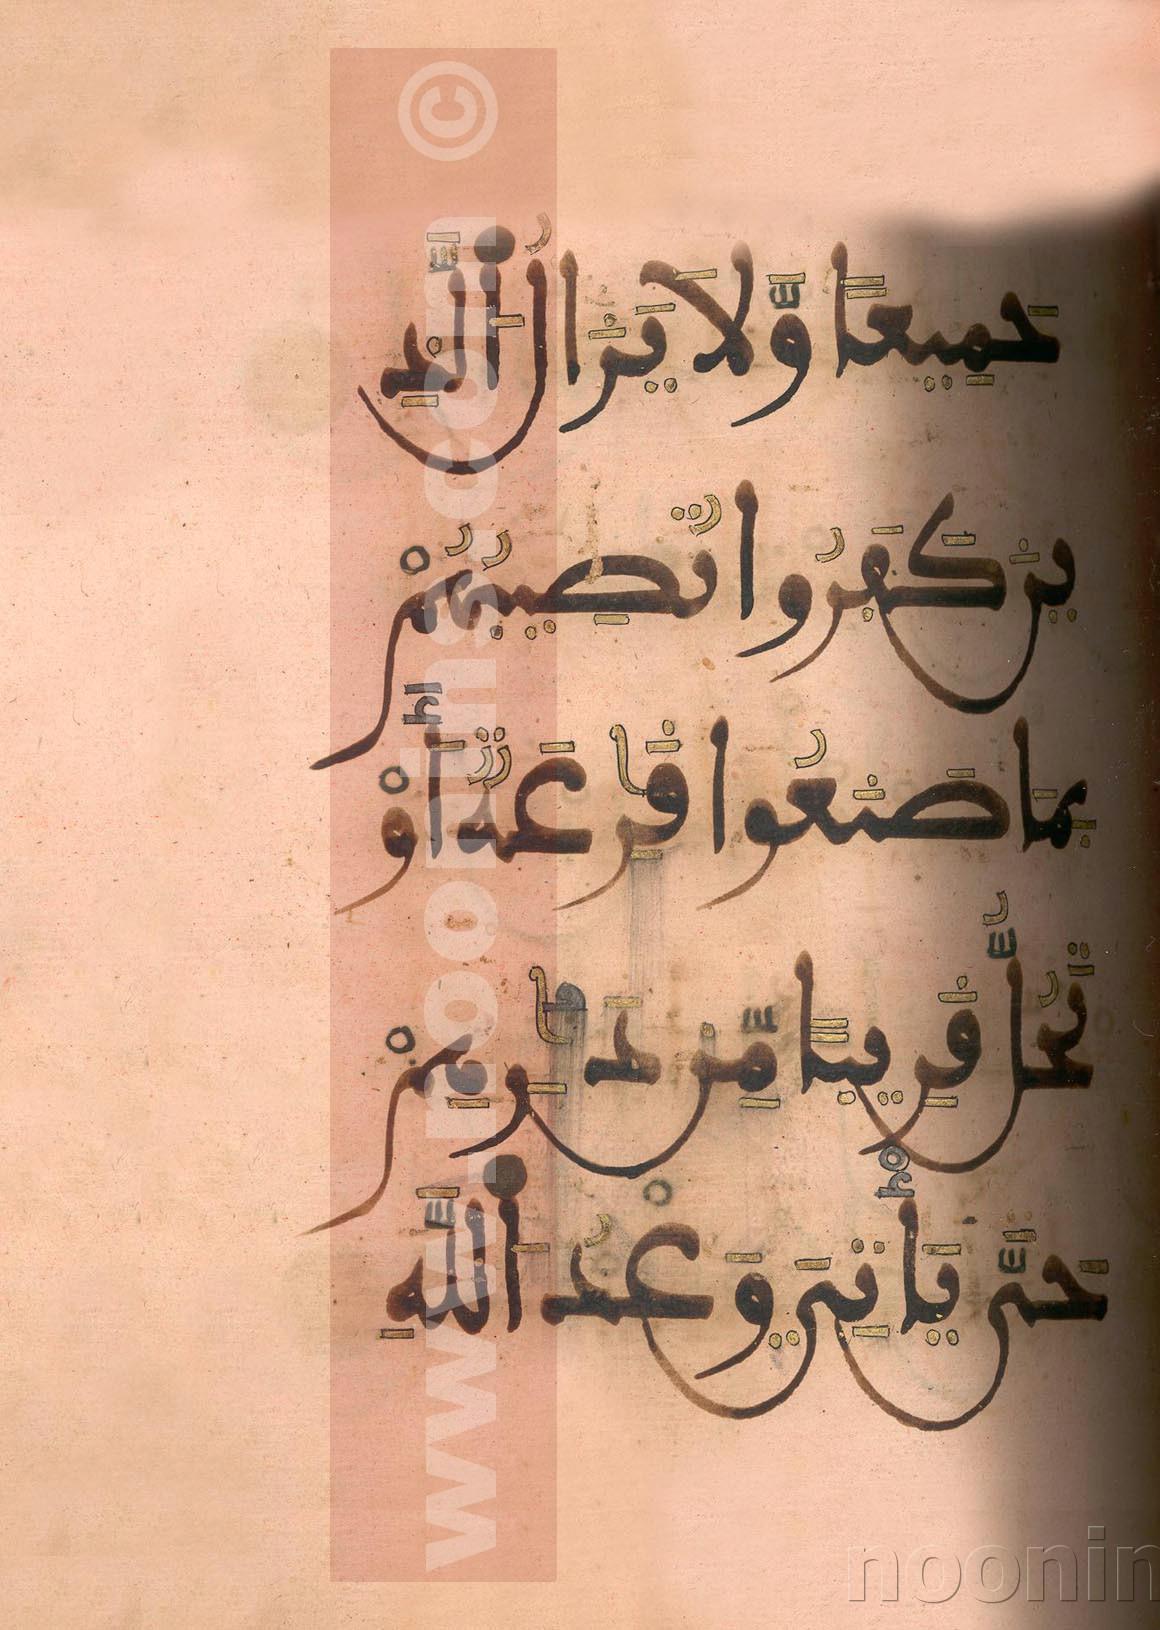 جَمِيعًا وَّلَا يَزَالُ الَّذِ
ينَ كَفَرُوا تُصِيبُهُمْ
بِمَا صَنَعُوا قَارِعَةٌ أَوْ
تَحُلُّ قَرِيبًا مِّن دَارِهِمْ
حَتَّى يَأْتِيَ وَعْدُ اللَّهِ
www.noonins.com ©
noonin